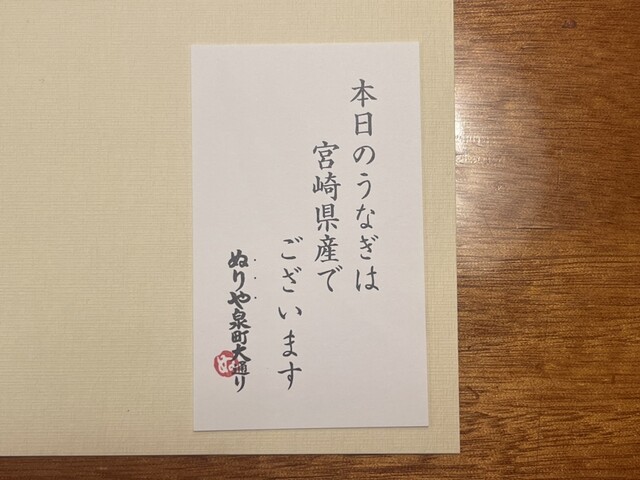 本日のうなぎは
宮崎県産で
ございます
ぬりや泉町大通り
ぬ